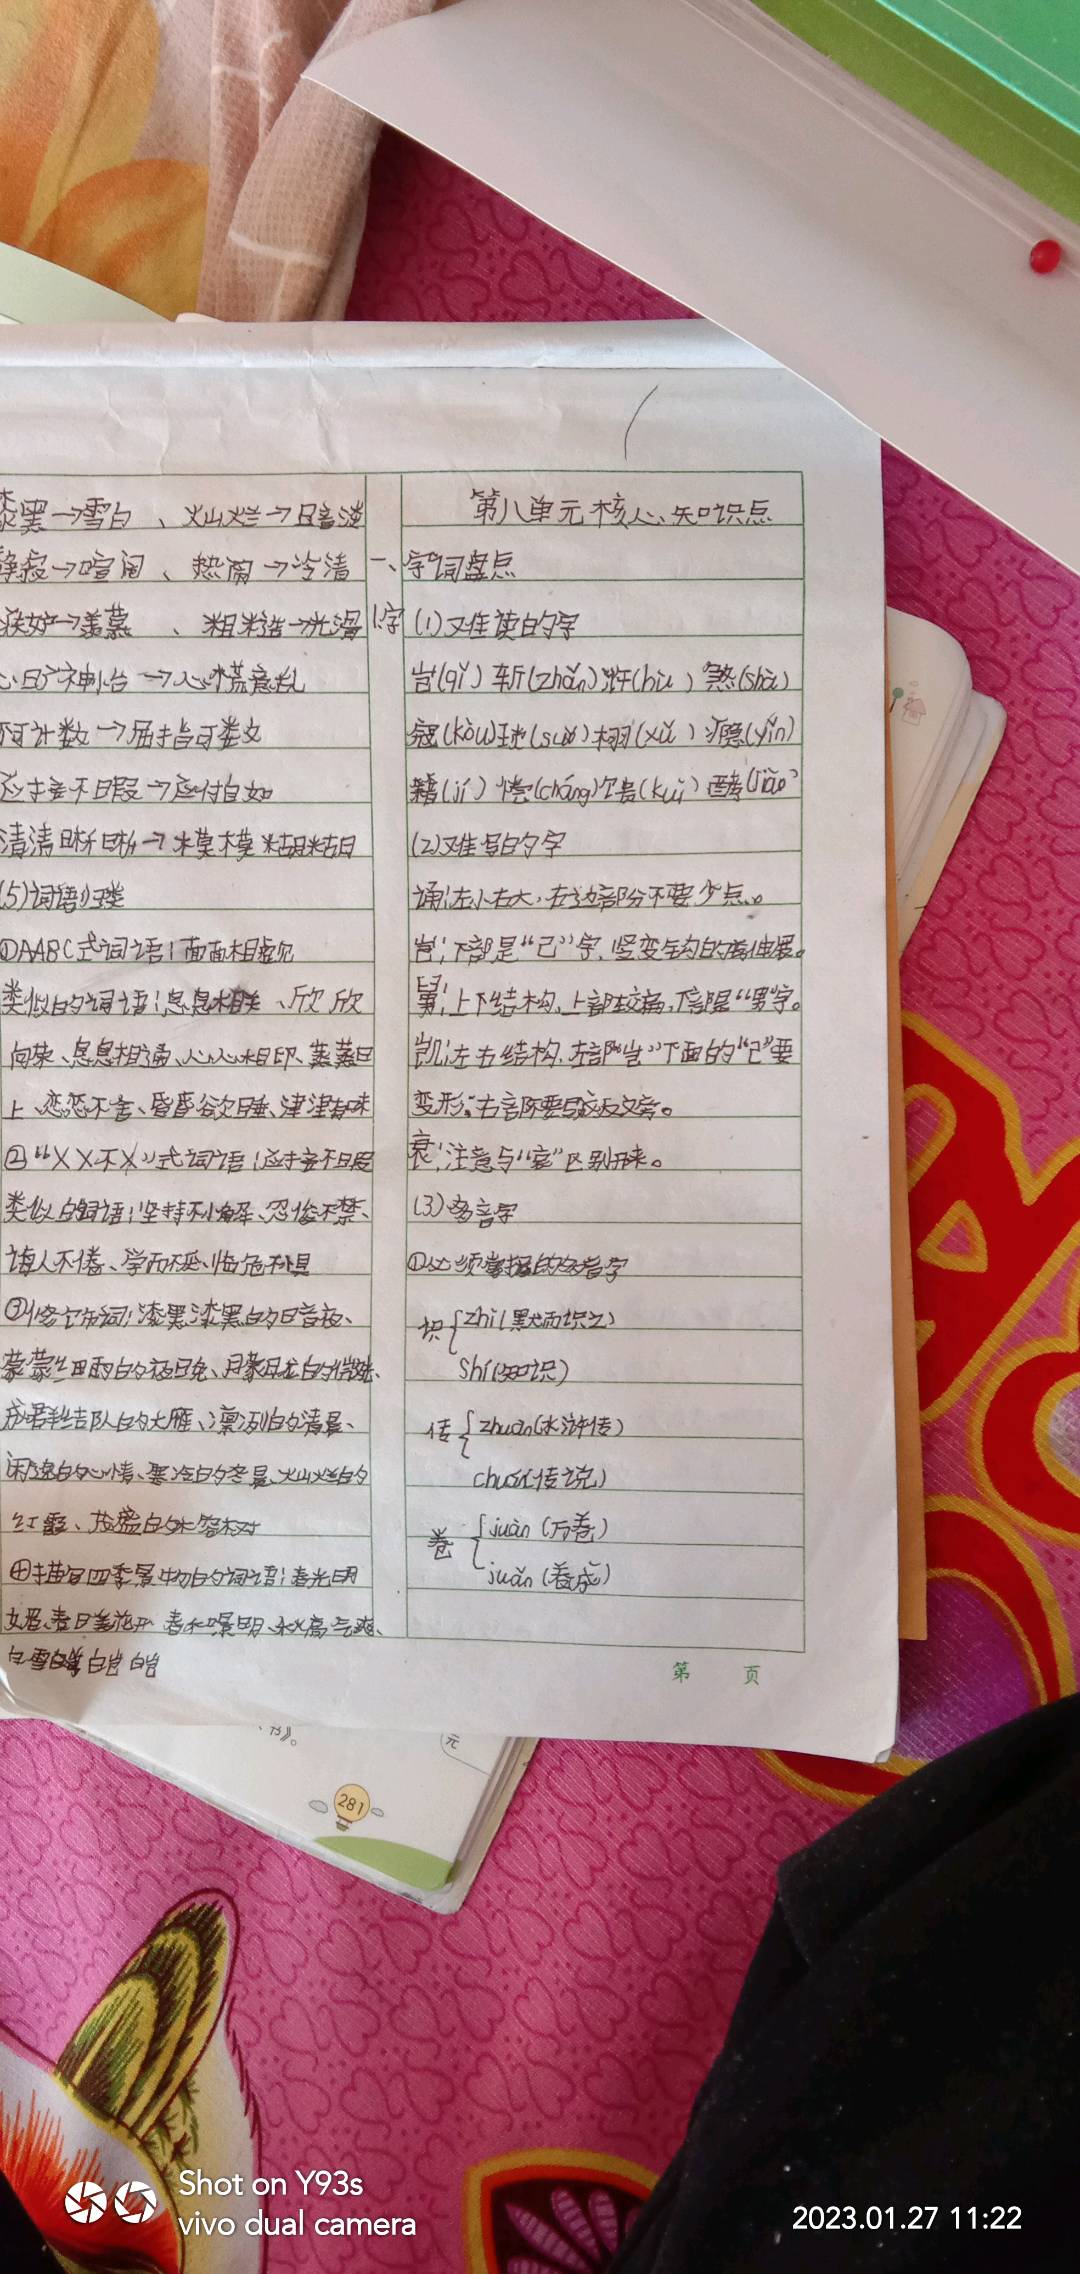 漆黑→雪白、灿烂→暗淡
静寂→喧闹、热闹→冷清
嫉妒→羡慕、粗糙→光滑
心旷神怡→心慌意乱
不可计数→屈指可数
应接不暇→应付自如
清清晰晰→模模糊糊
(5)词语归类
①AABC式词语:面面相觑
类似的词语:息息相关、欣欣
向荣、息息相通、心心相印、蒸蒸日
上、恋恋不舍、昏昏欲睡、津津有味
②“XX不X”式词语:应接不暇
类似的词语:坚持不懈、忍俊不禁、
诲人不倦、学而不厌、临危不惧
③修饰词:漆黑漆黑的暗夜、
蒙蒙细雨的夜晚、月朦胧的
成群结队的大雁、凛冽的清晨、
闲逸的心情、寒冷的冬晨、灿烂的
红霞、茂盛的榕树
④描写四季景物的词语:春光明
媚、春日姜花开 春和景明、秋高气爽、
白雪皑皑
第八单元核心知识点
一、字词盘点
1.字 (1)难读的字
岂(qǐ) 斩(zhǎn) 浒(hǔ) 煞(shà)
寇(kòu) 琐(suǒ) 栩(xǔ) 瘾(yǐn)
籍(jí) 偿(cháng) 愧(kuì) 酵(jiào)
(2)难写的字
诵:左小右大,右边部分不要少点。
岂:下部是“己”字,竖变钩的伸展。
舅:上下结构,上部较扁,下部是“男”字。
凯:左右结构,左部“岂”下面的“己”要
变形,右部
衰:注意与“衷”区别开来。
(3)多音字
①必须掌握的多音字
识{zhì(默而识之)
shí(知识)
传{zhuàn(水浒传)
chuán(传说)
卷{juàn(万卷)
juǎn(卷成)
第 页
书》。
元
281
Shot on Y93s
vivo dual camera
2023.01.27 11:22